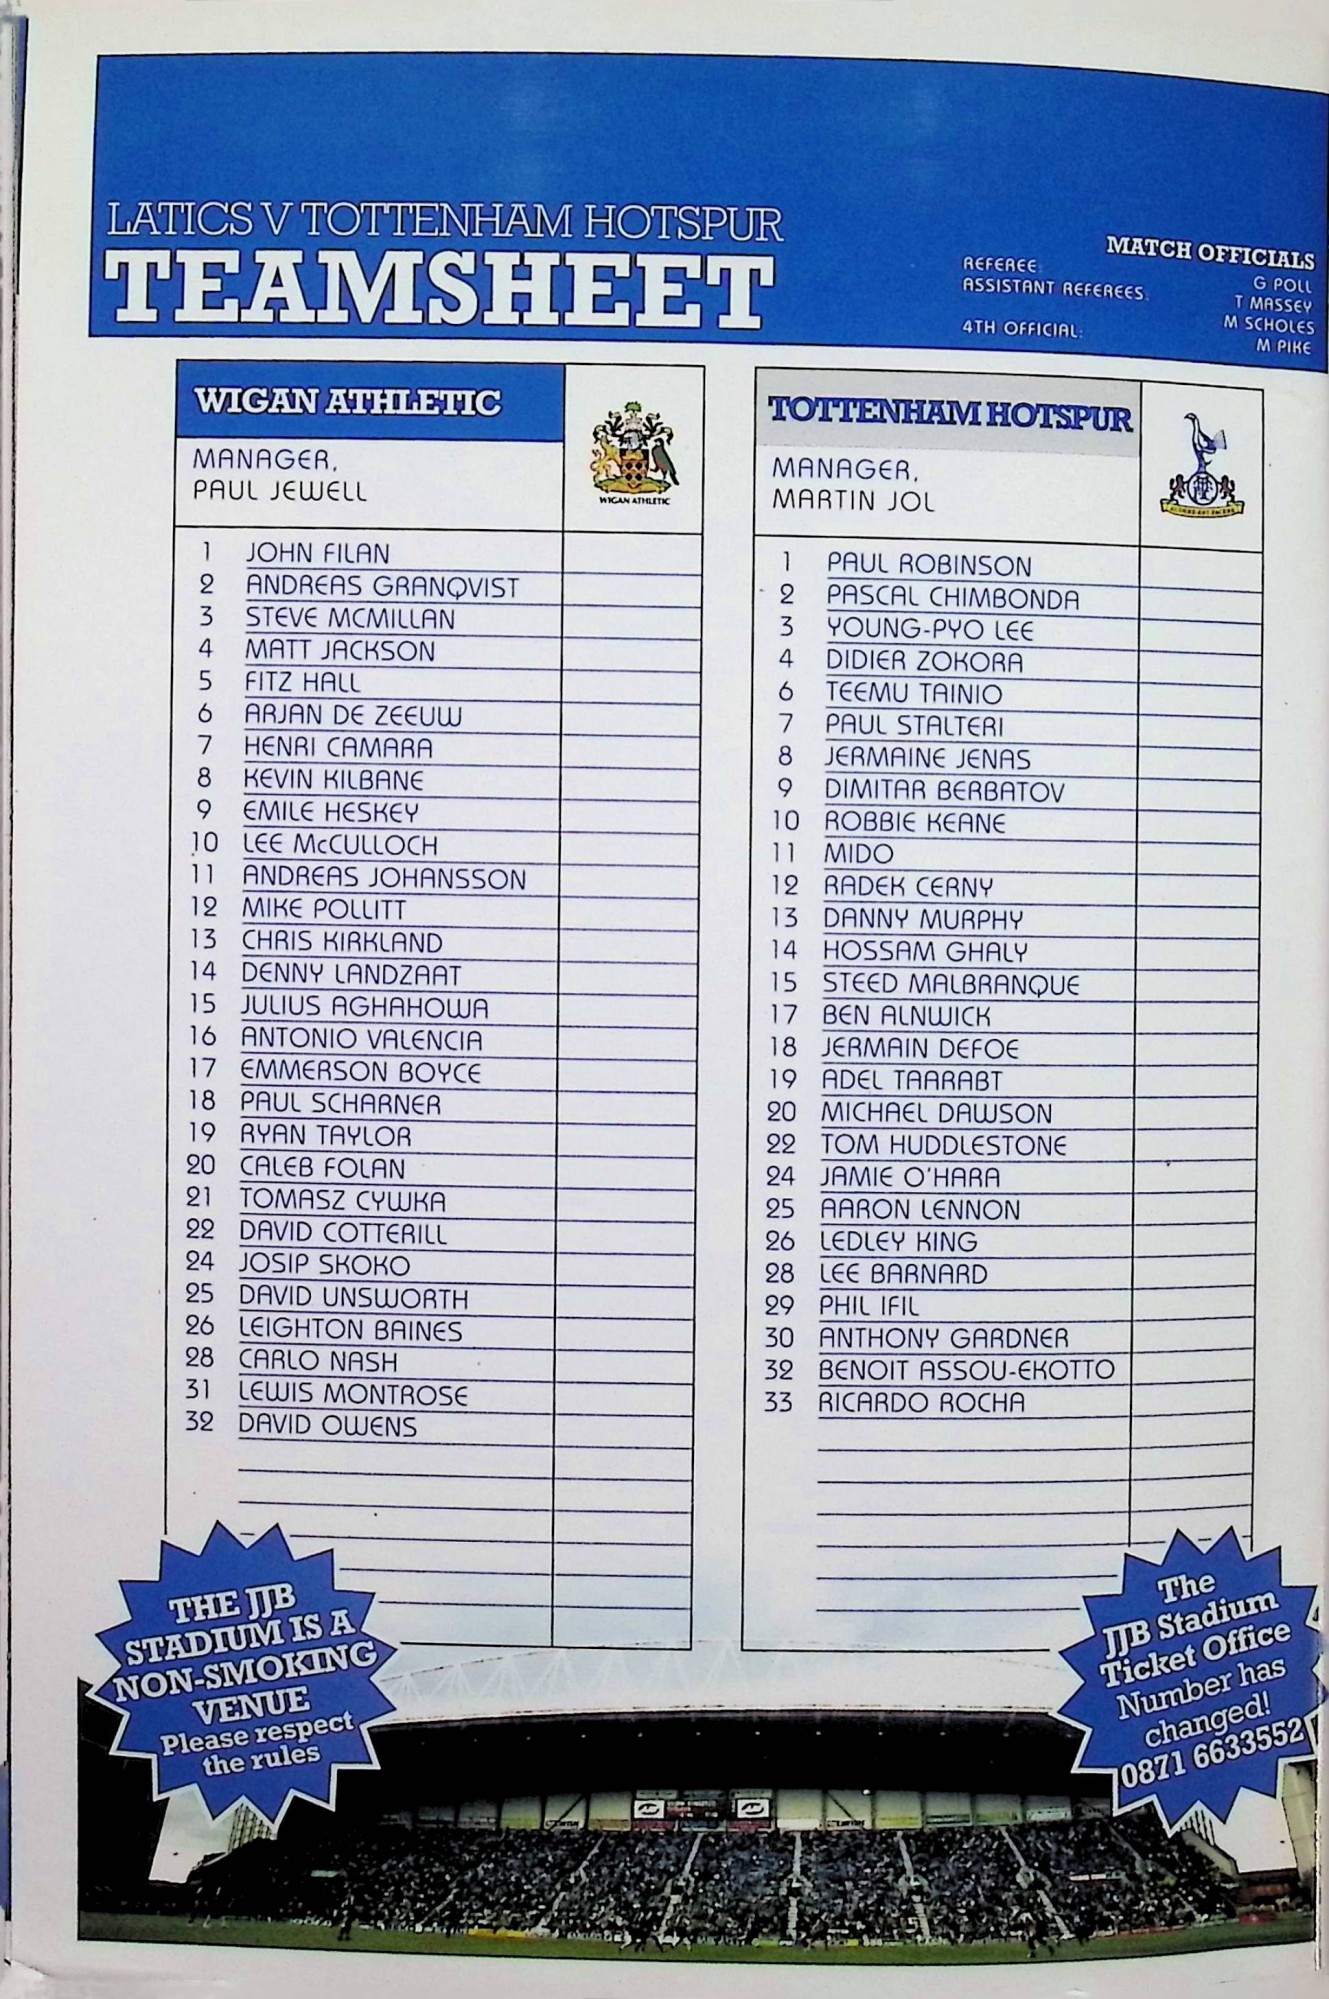 LATICS V TOTTENHAM HOTSPUR
TEAMSHEET
MATCH OFFICIALS
REFEREE: G POLL
ASSISTANT REFEREES: T MASSEY
M SCHOLES
4TH OFFICIAL: M PIKE
WIGAN ATHLETIC
MANAGER,
PAUL JEWELL
WIGAN ATHLETIC
1 JOHN FILAN
2 ANDREAS GRANQVIST
3 STEVE MCMILLAN
4 MATT JACKSON
5 FITZ HALL
6 ARJAN DE ZEEUW
7 HENRI CAMARA
8 KEVIN KILBANE
9 EMILE HESKEY
10 LEE McCULLOCH
11 ANDREAS JOHANSSON
12 MIKE POLLITT
13 CHRIS KIRKLAND
14 DENNY LANDZAAT
15 JULIUS AGHAHOWA
16 ANTONIO VALENCIA
17 EMMERSON BOYCE
18 PAUL SCHARNER
19 RYAN TAYLOR
20 CALEB FOLAN
21 TOMASZ CYWKA
22 DAVID COTTERILL
24 JOSIP SKOKO
25 DAVID UNSWORTH
26 LEIGHTON BAINES
28 CARLO NASH
31 LEWIS MONTROSE
32 DAVID OWENS
TOTTENHAM HOTSPUR
MANAGER,
MARTIN JOL
1 PAUL ROBINSON
2 PASCAL CHIMBONDA
3 YOUNG-PYO LEE
4 DIDIER ZOKORA
6 TEEMU TAINIO
7 PAUL STALTERI
8 JERMAINE JENAS
9 DIMITAR BERBATOV
10 ROBBIE KEANE
11 MIDO
12 RADEK CERNY
13 DANNY MURPHY
14 HOSSAM GHALY
15 STEED MALBRANQUE
17 BEN ALNWICK
18 JERMAIN DEFOE
19 ADEL TAARABT
20 MICHAEL DAWSON
22 TOM HUDDLESTONE
24 JAMIE O'HARA
25 AARON LENNON
26 LEDLEY KING
28 LEE BARNARD
29 PHIL IFIL
30 ANTHONY GARDNER
32 BENOIT ASSOU-EKOTTO
33 RICARDO ROCHA
THE JJB
STADIUM IS A
NON-SMOKING
VENUE
Please respect
the rules
The
JJB Stadium
Ticket Office
Number has
changed!
0871 6633552